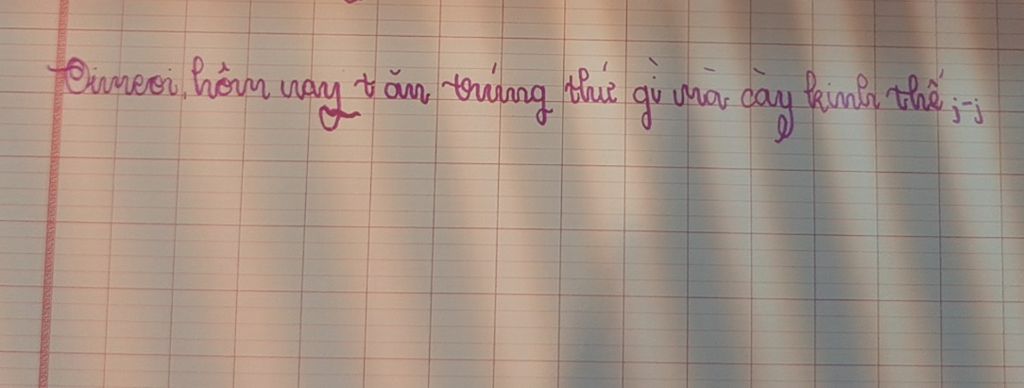 Oimeoi, hôm nay t ăn trúng thứ gì mà cày kinh thế ;-;